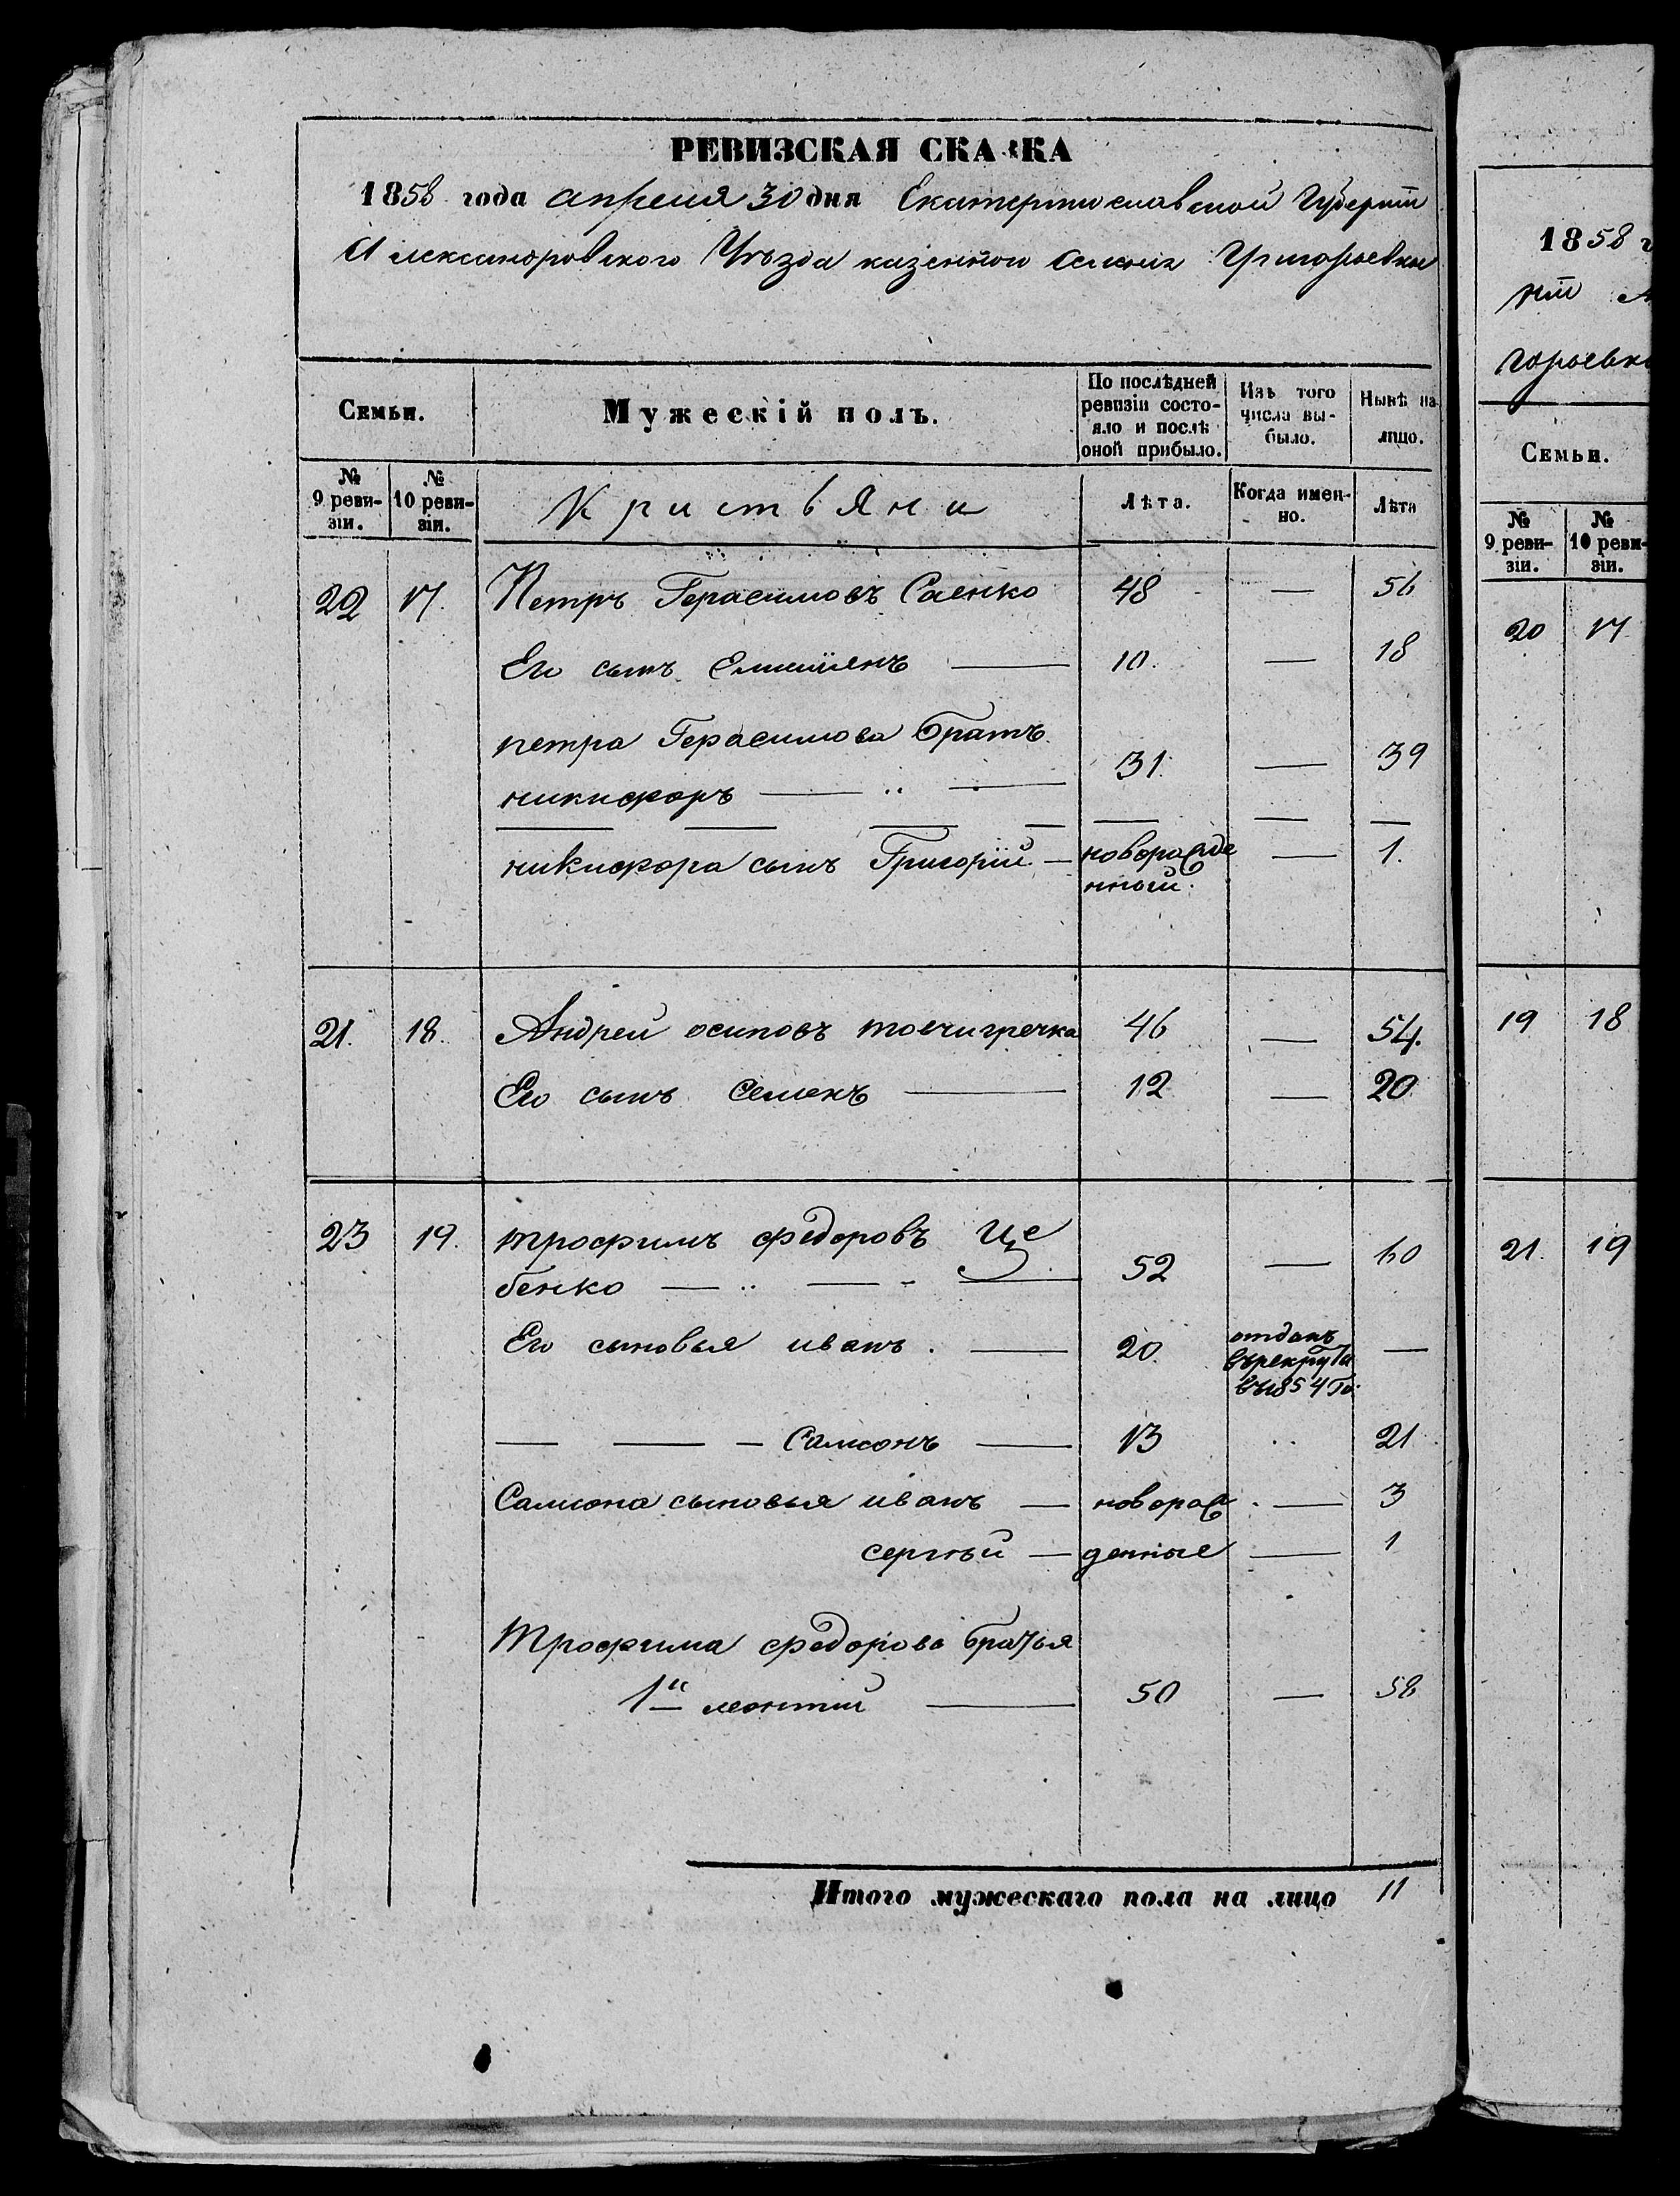 РЕВИЗСКАЯ СКАЗКА
1858 года апреля 30 дня Екатеринославской Губернiи
Александровского Уѣзда казенной селенiя Григорьевки
Семьи.
Мужескiй полъ.
По послѣдней ревизiи состояло и послѣ оной прибыло.
Изъ того числа выбыло.
Нынѣ на лицо.
№ 9 ревизiи.
№ 10 ревизiи.
Кристьяни
Лѣта.
Когда именно.
Лѣта
22 17. Петръ Герасимовъ Саенко 48 — 56
Его сынъ Емилiянъ — 10. — 18
петра Герасимова братъ
никифоръ — " — 31. — 39
никифора сынъ Григорiй — новорожде
нный. — 1.
21. 18. Андрей осиповъ товчигречка 46 — 54.
Его сынъ Семенъ — 12 — 20
23 19. трофимъ федоровъ Це
бенко — " — 52 — 60
Его сыновья иванъ . — 20. отданъ
въ рекрута
въ 1854 го. —
— — — Самсонъ — 13 .. 21
Самсона сыновья иванъ — новорож — 3
сергѣй — денные — 1
Трофима федорова братья
1й леонтiй — 50 — 58
Итого мужескаго пола на лицо 11
1858 г
нiи А
горьевки
Семьи.
№ 9 ревизiи.
№ 10 ревизiи.
20 17
19 18
21. 19